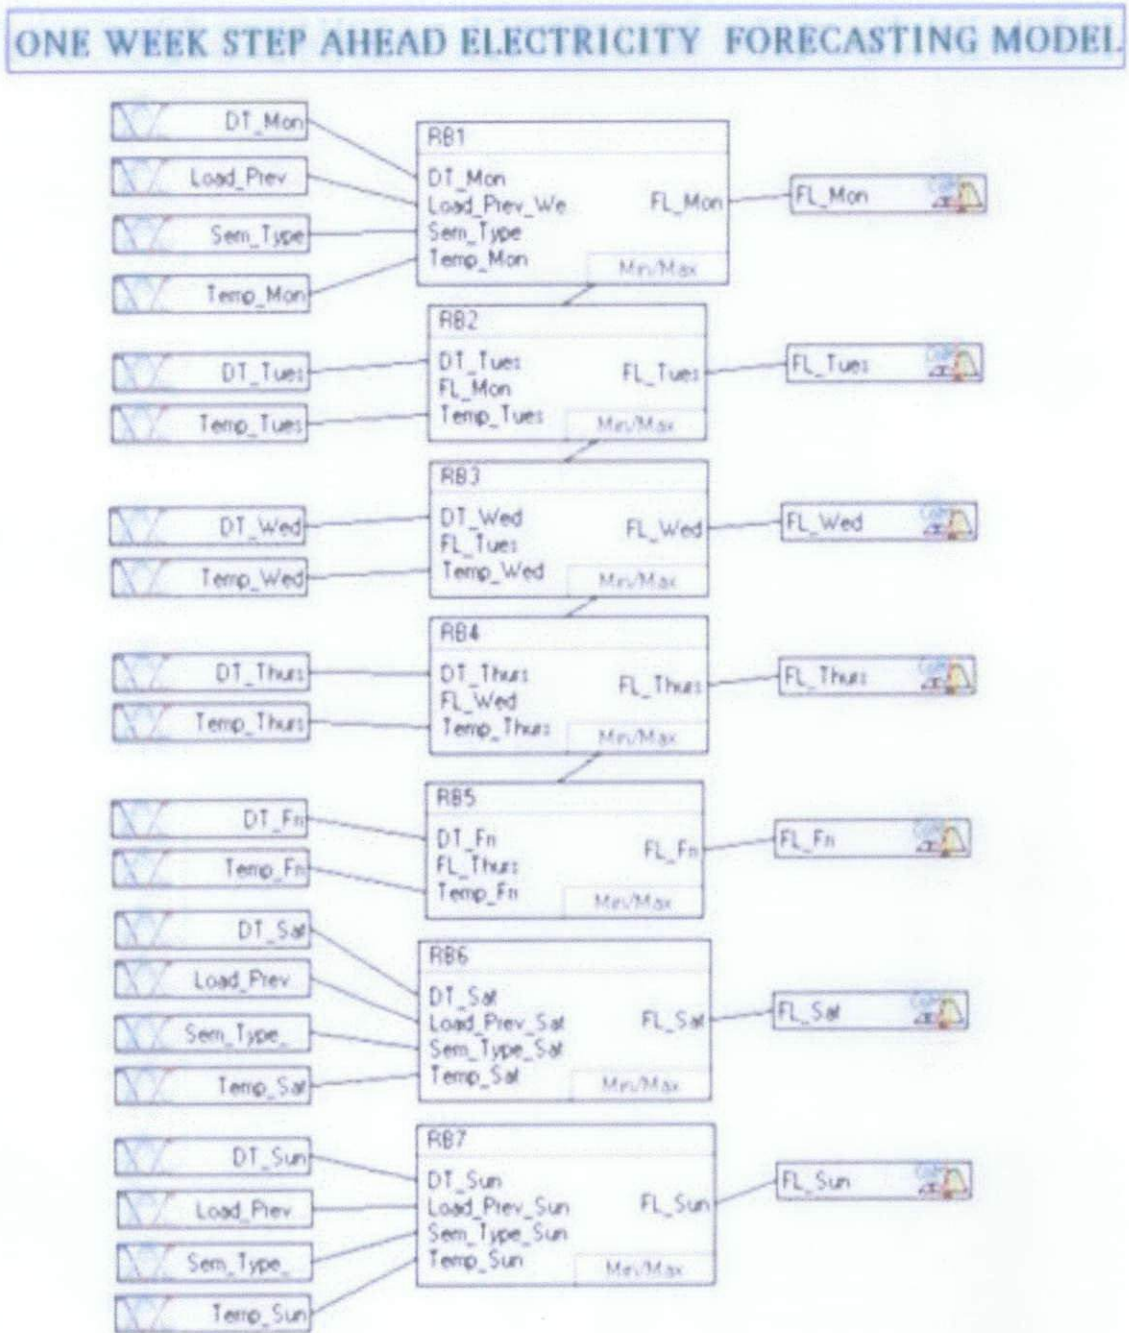 ONE WEEK STEP AHEAD ELECTRICITY FORECASTING MODEL
DT_Mon
Load_Prev
Sem_Type
Temp_Mon
RB1
DT_Mon
Load_Prev_We
Sem_Type
Temp_Mon
FL_Mon
Min/Max
FL_Mon
DT_Tues
Temp_Tues
RB2
DT_Tues
FL_Mon
Temp_Tues
FL_Tues
Min/Max
FL_Tues
DT_Wed
Temp_Wed
RB3
DT_Wed
FL_Tues
Temp_Wed
FL_Wed
Min/Max
FL_Wed
DT_Thurs
Temp_Thurs
RB4
DT_Thurs
FL_Wed
Temp_Thurs
FL_Thurs
Min/Max
FL_Thurs
DT_Fri
Temp_Fri
RB5
DT_Fri
FL_Thurs
Temp_Fri
FL_Fri
Min/Max
FL_Fri
DT_Sat
Load_Prev
Sem_Type_
Temp_Sat
RB6
DT_Sat
Load_Prev_Sat
Sem_Type_Sat
Temp_Sat
FL_Sat
Min/Max
FL_Sat
DT_Sun
Load_Prev
Sem_Type_
Temp_Sun
RB7
DT_Sun
Load_Prev_Sun
Sem_Type_Sun
Temp_Sun
FL_Sun
Min/Max
FL_Sun